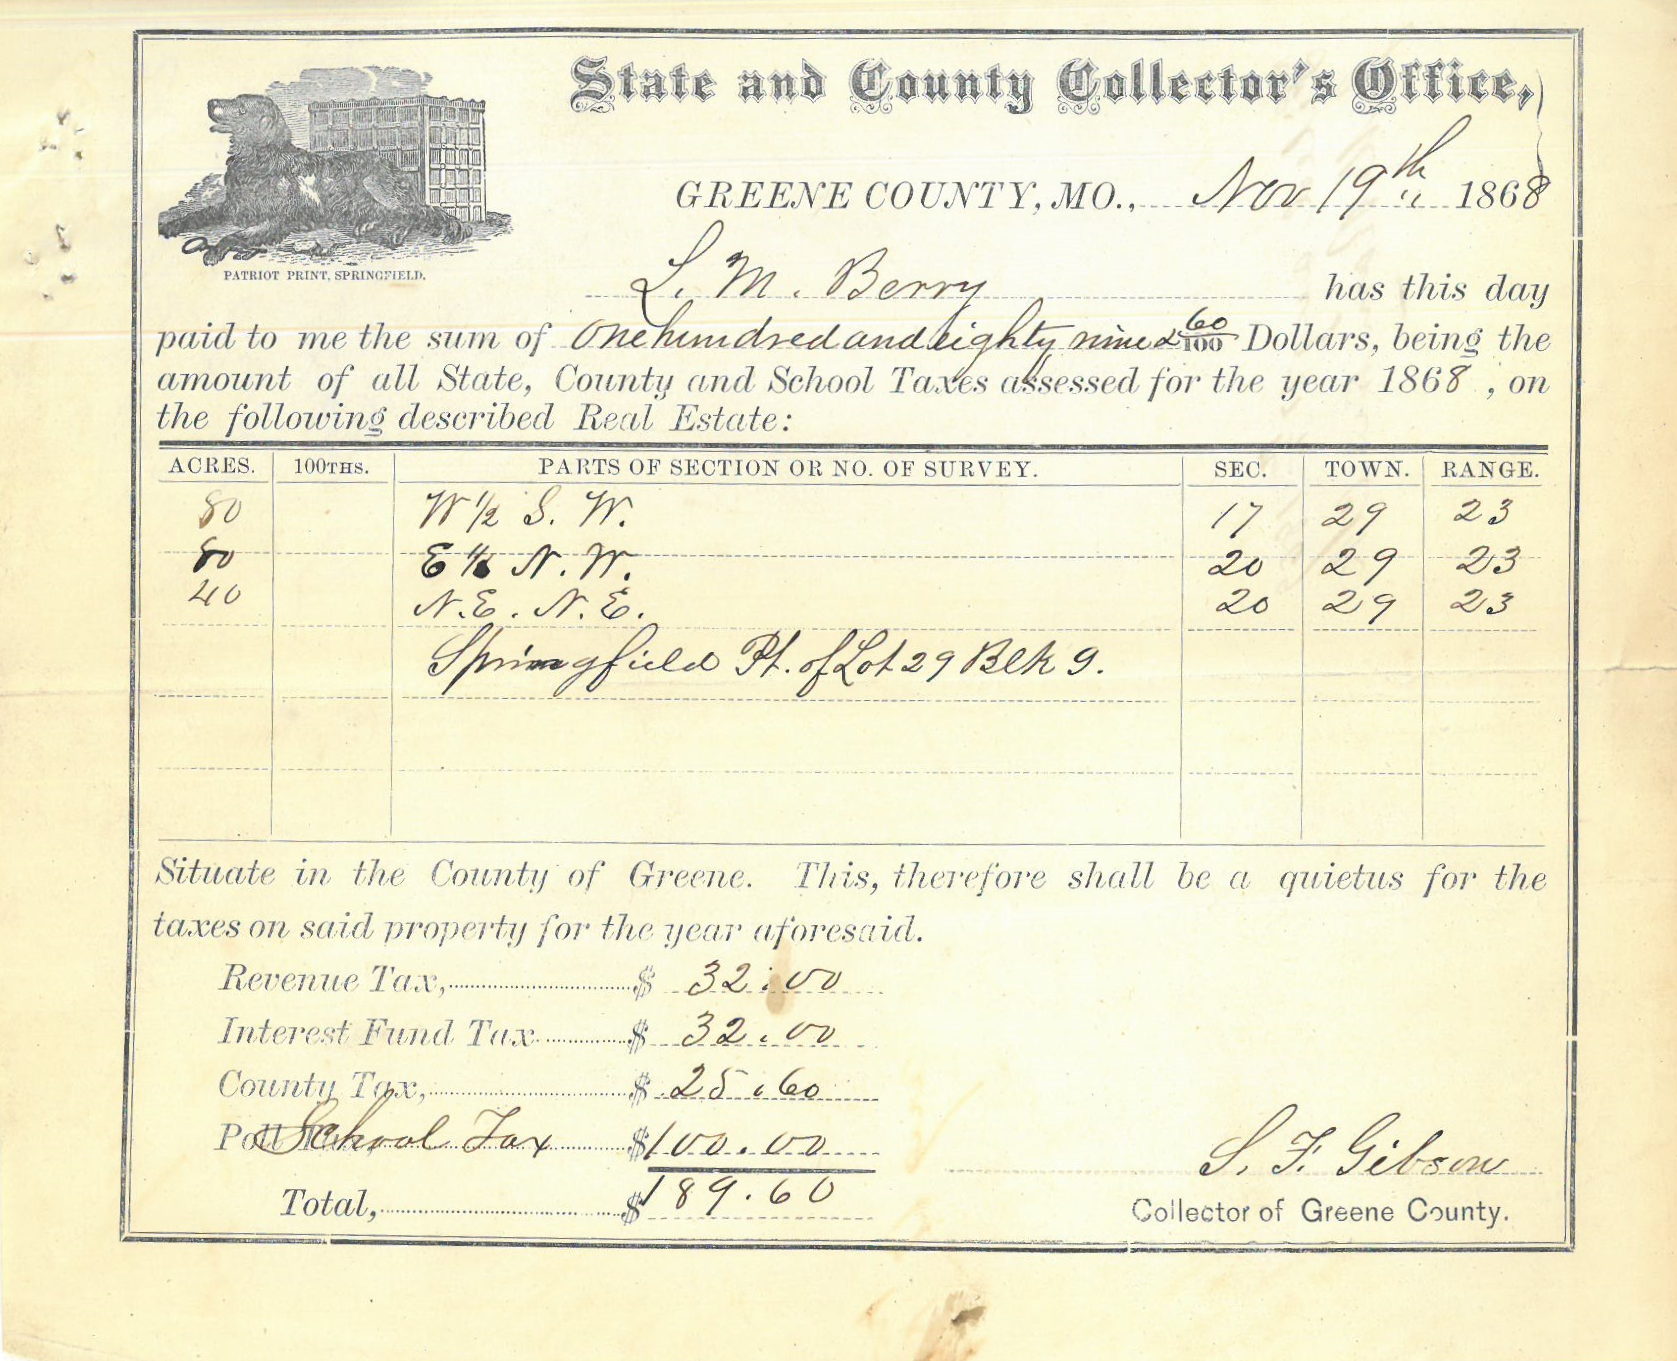 State and County Collector's Office,
GREENE COUNTY, MO., Nov 19th 1868
PATRIOT PRINT, SPRINGFIELD.
L. M. Berry has this day
paid to me the sum of One hundred and eighty nine & 60/100 Dollars, being the
amount of all State, County and School Taxes assessed for the year 1868, on
the following described Real Estate:
ACRES. 100THS. PARTS OF SECTION OR NO. OF SURVEY. SEC. TOWN. RANGE.
80 W ½ S. W. 17 29 23
80 E ½ N. W. 20 29 23
40 N. E. N. E. 20 29 23
Springfield Pt. of Lot 29 Blk 9.
Situate in the County of Greene. This, therefore shall be a quietus for the
taxes on said property for the year aforesaid.
Revenue Tax, $ 32.00
Interest Fund Tax $ 32.00
County Tax, $ 25.60
School Tax $ 100.00
S. F. Gibson
Total, $ 189.60
Collector of Greene County.